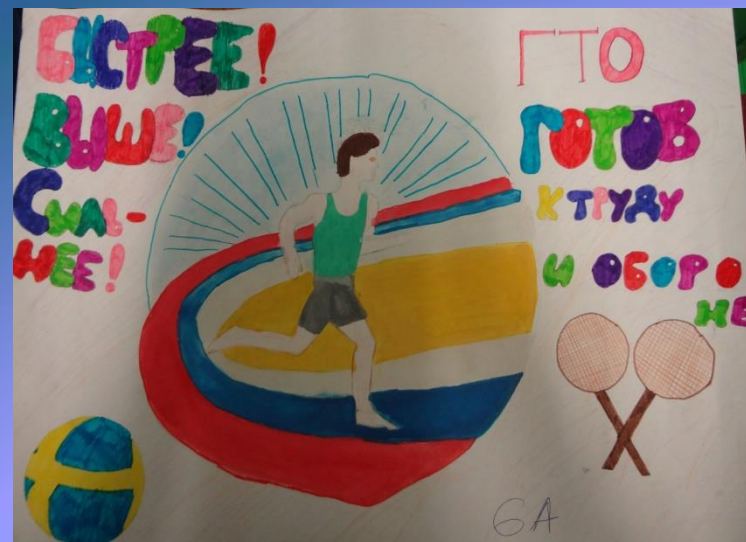 БЫСТРЕЕ!
ВЫШЕ!
СИЛЬ-
НЕЕ!
ГТО
ГОТОВ
К ТРУДУ
И ОБОРО
НЕ
6А